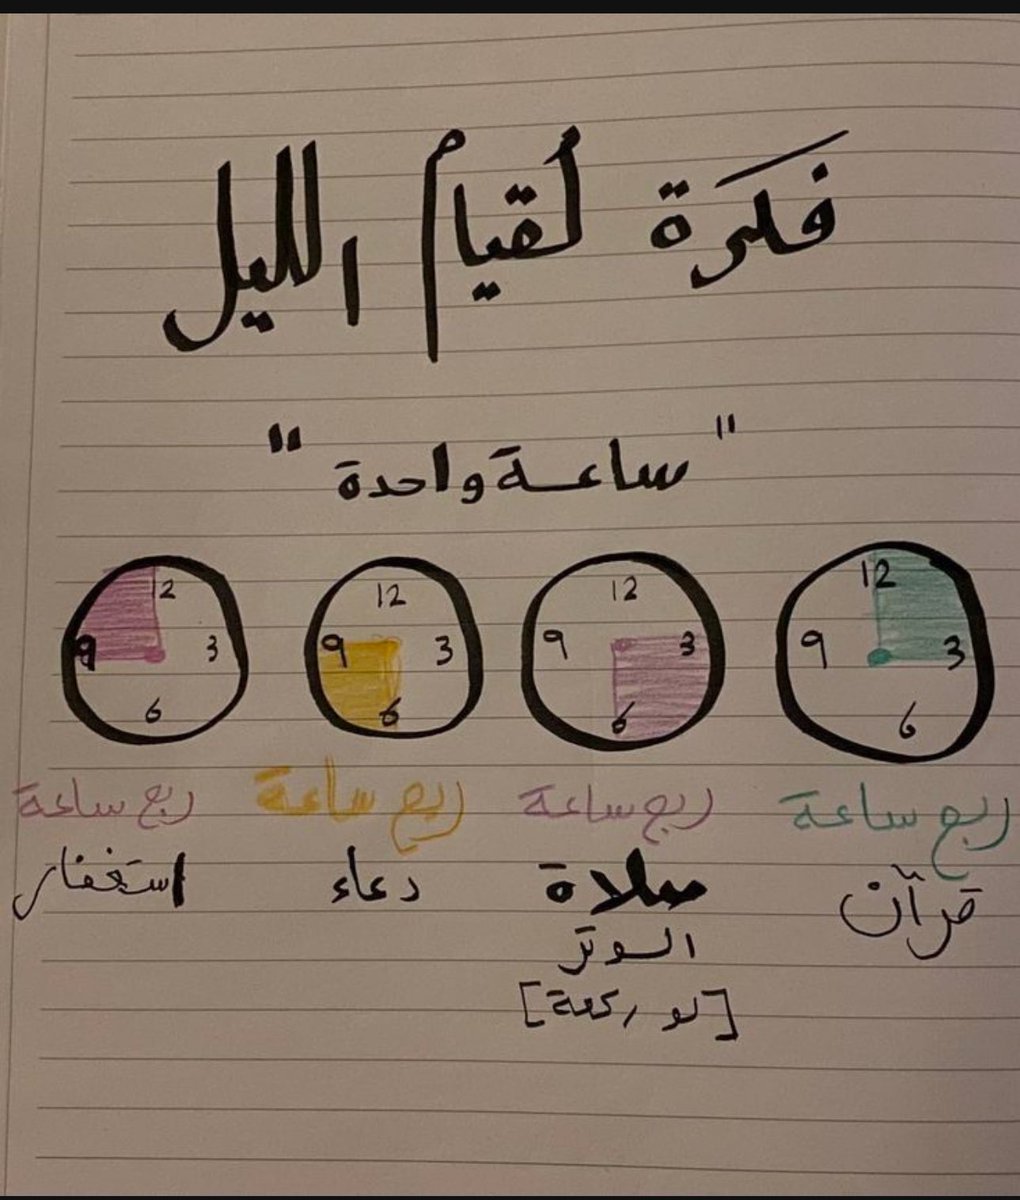 فكرة لقيام الليل
"ساعة واحدة"
12 3 6 9
12 3 6 9
12 3 6 9
12 3 6 9
ربع ساعة ربع ساعة ربع ساعة ربع ساعة
قرآن صلاة دعاء استغفار
الوتر
[لو ركعة]